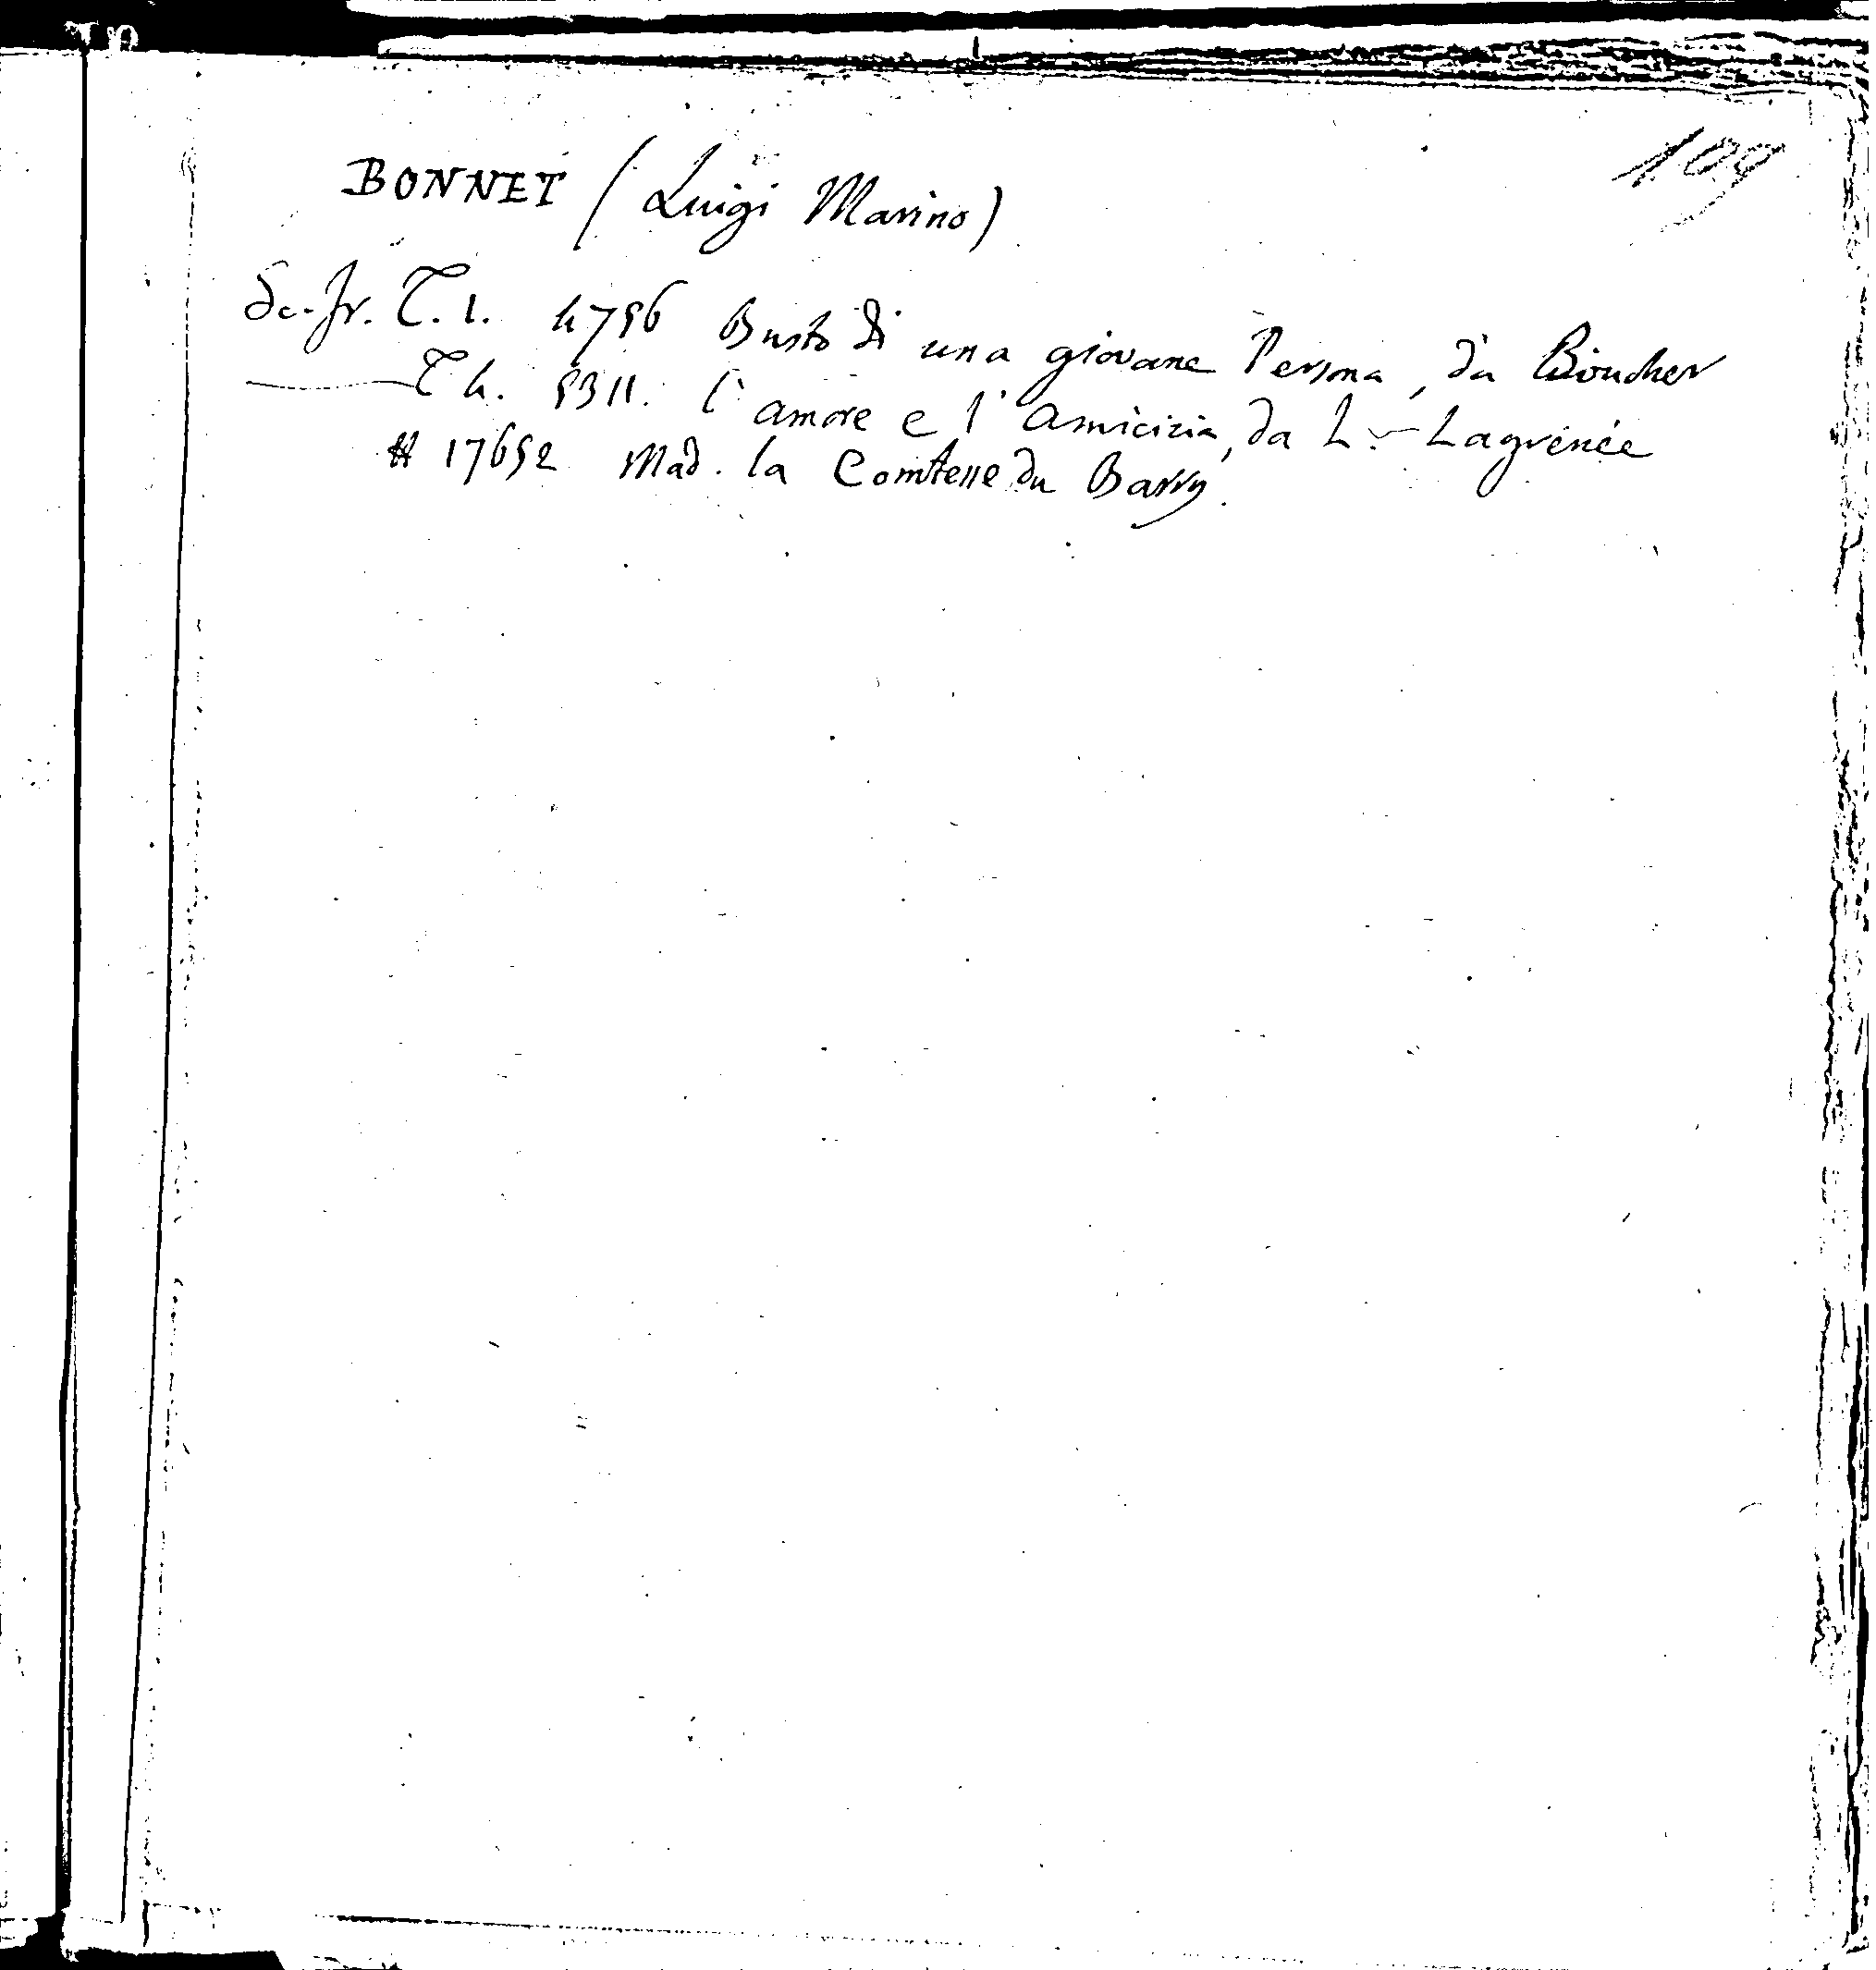 109
BONNET (Luigi Marino)
Sc. fr. T. 1. 4756 Busto di una giovane Persona, da Boucher
T 4. 5311. l'amore e l'amicizia, da L. Lagrenée
# 17652 Mad. la Comtesse du Barry.